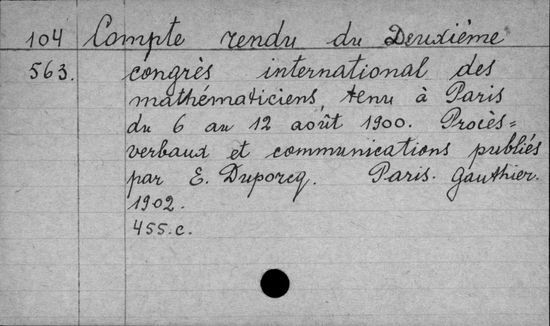 104 Compte rendu du Deuxième
563. congrès international des
mathématiciens, tenu à Paris
du 6 au 12 août 1900. Procès=
verbaux et communications publiés
par E. Duporcq. Paris. Gauthier.
1902.
455.c.